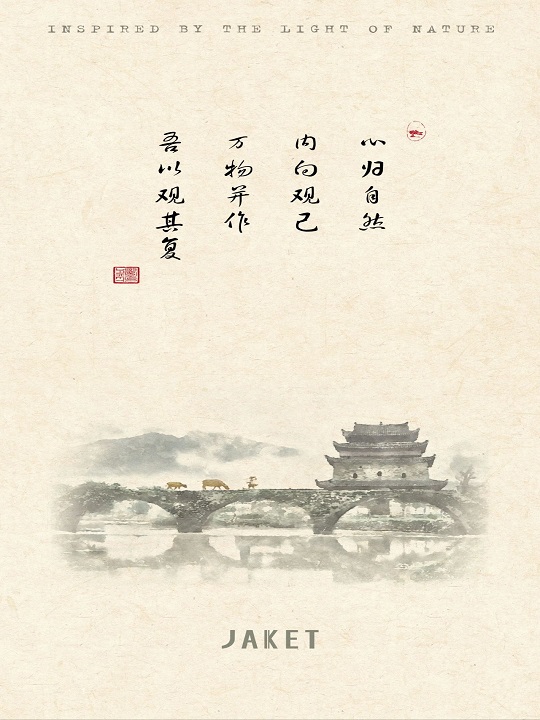 INSPIRED BY THE LIGHT OF NATURE
心归自然
内向观己
万物并作
吾以观其复
JAKET